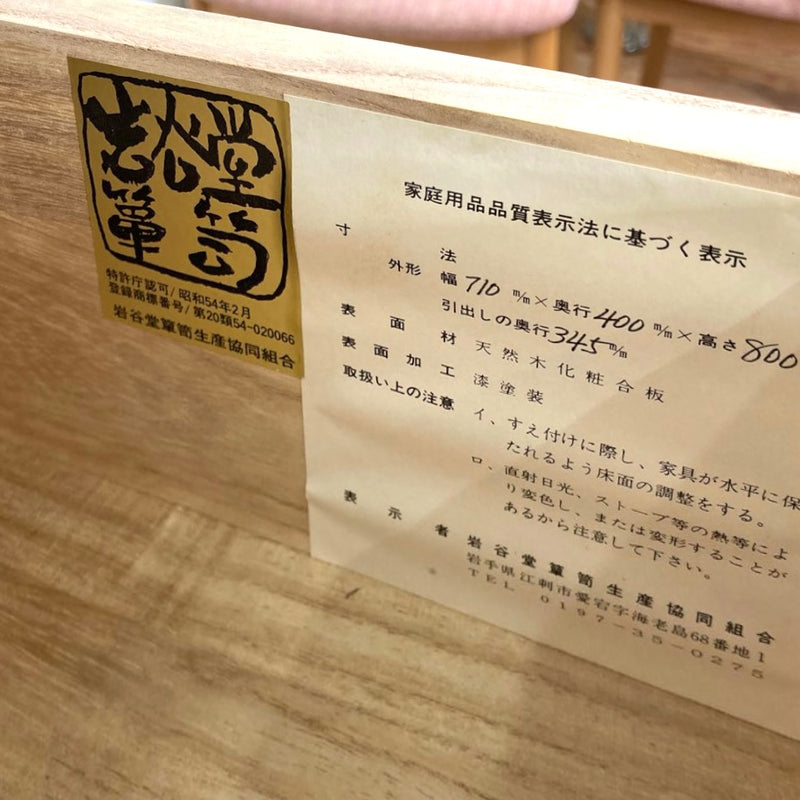 岩谷堂箪笥
特許庁認可/昭和54年2月
登録商標番号/第20類54-020066
岩谷堂簞笥生産協同組合
家庭用品品質表示法に基づく表示
寸法
外形 幅710m/m×奥行400m/m×高さ800
引出しの奥行345m/m
表面材 天然木化粧合板
表面加工 漆塗装
取扱い上の注意 イ、すえ付けに際し、家具が水平に保
たれるよう床面の調整をする。
ロ、直射日光、ストーブ等の熱等によ
り変色し、または変形することが
あるから注意して下さい。
表示者 岩谷堂簞笥生産協同組合
岩手県江刺市愛宕字海老島68番地1
TEL 0197-35-0275